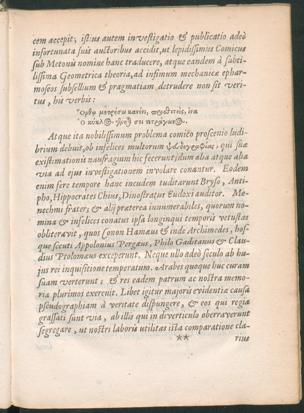 cem accepit, istius autem investigatio & publicatio adeò
infortunata suis auctoribus accidit, ut lepidissimus Comicus
sub Metonis nomine hanc traducere, atque eandem à subti-
lissima Geometrica theoria, ad infimum mechanicæ ephar-
moseos subsellium & pragmatiam detrudere non sit veri-
tus, his verbis:
Ὀρθῷ μετρήσω κανόνι, προστιθείς, ἵνα
Ὁ κύκλος γένηταί σοι τετράγωνος.
Atque ita nobilissimum problema comico proscenio ludi-
brium debuit, ob infelices multorum qui sua
existimationis naufragium hic fecerunt, dum alia atque alia
via ad ejus investigationem involare conantur. Eodem
enim fere tempore hanc incudem tuditarunt Bryso, Anti-
pho, Hippocrates Chius, Dinostratus Eudoxi auditor, Me-
nechmi frater; & alii præterea innumerabiles, quorum nom-
ina & infelices conatus ipsa longinqui temporis vetustas
obliteravit, quos Conon Hamæus & inde Archimedes, hos-
que secuti Appolonius Pergæus, Philo Gaditanus & Clau-
dius Ptolomæus exceperunt. Neque ullo adeò seculo ab hu-
jus rei inquisitione temperatum. Arabes quoque huc curam
suam verterunt; & res eadem patrum ac nostra memo-
ria plurimos exercuit. Libet igitur majoris evidentiæ causa
pseudographiam à veritate dispungere, & eos qui regia
grassati sunt via, ab illis qui in diverticulo oberraverunt
segregare, ut nostri laboris utilitas ista comparatione cla-
**
rius